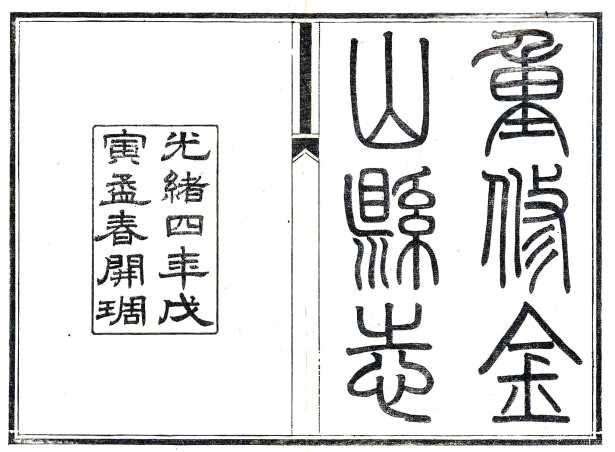 重修金
山縣志
光緒四年戊
寅孟春開琱